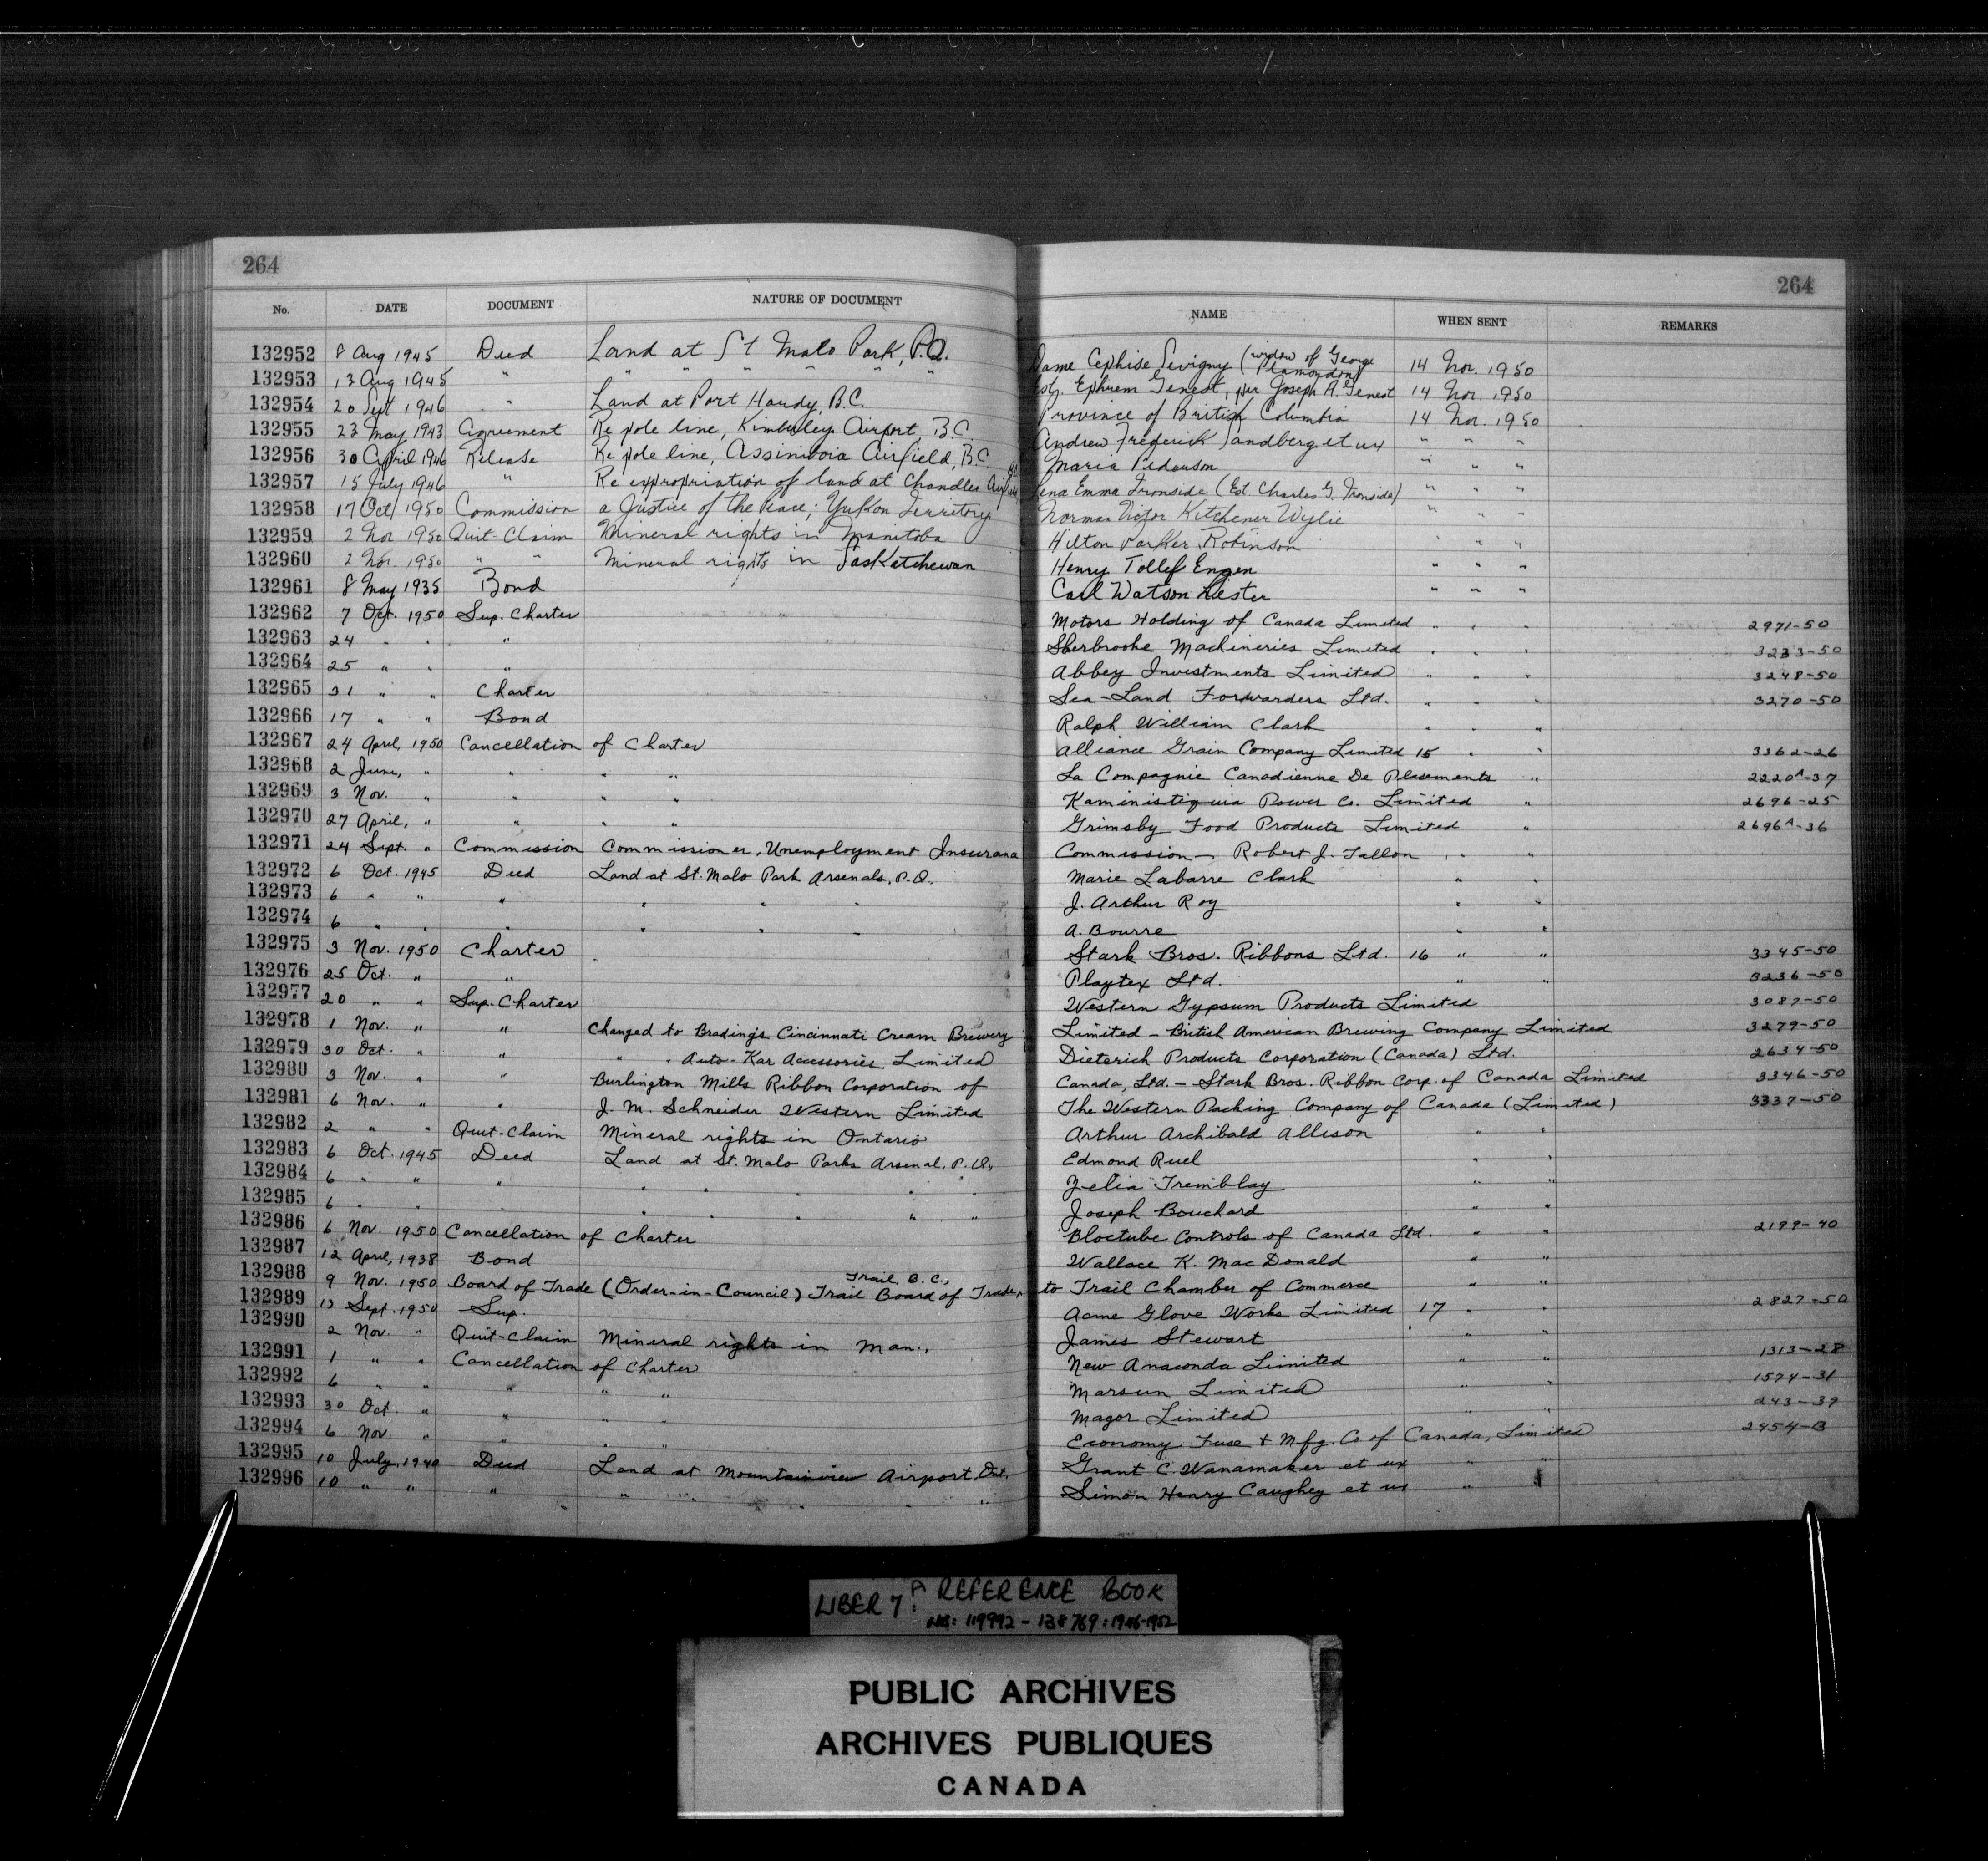 264
264
No. DATE DOCUMENT NATURE OF DOCUMENT NAME WHEN SENT REMARKS
132952 8 Aug 1945 Deed Land at St Malo Park, P.Q. Dame Cephise Sevigny (widow of George Plamondon) 14 Nov. 1950
132953 13 Aug 1945 " " " " " " " Est. Ephrem Genest, per Joseph A. Genest 14 Nov. 1950
132954 20 Sept 1946 " Land at Port Hardy, B.C. Province of British Columbia 14 Nov. 1950
132955 23 May 1943 Agreement Re pole line, Kimberley Airport B.C. Andrew Frederick Sandberg et ux " " "
132956 30 April 1946 Release Re pole line, Assiniboia Airfield, B.C. Maria Pederson " " "
132957 15 July 1946 " Re expropriation of land at Chandler Lena Emma Ironside (Est Charles G. Ironside) " " "
132958 17 Oct 1950 Commission a Justice of the Peace; Yukon Territory Norman Victor Kitchener Wylie " " "
132959 2 Nov 1950 Quit-Claim Mineral rights in Manitoba Hilton Parker Robinson " " "
132960 2 Nov. 1950 " " Mineral rights in Saskatchewan Henry Tollef Engen " " "
132961 8 May 1935 Bond Carl Watson Lester " " "
132962 7 Oct. 1950 Sup. Charter Motors Holding of Canada Limited " " " 2971-50
132963 24 " " " Sherbrooke Machineries Limited " " " 3233-50
132964 25 " " " Abbey Investments Limited " " " 3248-50
132965 31 " " Charter Sea-Land Forwarders Ltd. " " " 3270-50
132966 17 " " Bond Ralph William Clark " " "
132967 24 April, 1950 Cancellation of Charter Alliance Grain Company Limited 15 " " 3362-26
132968 2 June, " " " " La Compagnie Canadienne De Placements " 2220A-37
132969 3 Nov. " " " " Kaministiquia Power Co. Limited " 2696-25
132970 27 April, " " " " Grimsby Food Products Limited " 2696A-36
132971 24 Sept. " Commission Commissioner, Unemployment Insurance Commission — Robert J. Tallon " "
132972 6 Oct. 1945 Deed Land at St. Malo Park Arsenals, P.Q., Marie Labarre Clark " "
132973 6 " " " " " " J. Arthur Roy " "
132974 6 " " " " " " A. Bourre " "
132975 3 Nov. 1950 Charter Stark Bros. Ribbons Ltd. 16 " " 3345-50
132976 25 Oct. " " Playtex Ltd. " " 3236-50
132977 20 " " Sup. Charter Western Gypsum Products Limited 3087-50
132978 1 Nov. " " Changed to Bradings Cincinnati Cream Brewery Limited - British American Brewing Company Limited 3279-50
132979 30 Oct. " " " " Auto-Kar Accessories Limited Dieterich Products Corporation (Canada) Ltd. 2634-50
132980 3 Nov. " " Burlington Mills Ribbon Corporation of Canada, Ltd. - Stark Bros. Ribbon Corp. of Canada Limited 3346-50
132981 6 Nov. " " J. M. Schneider Western Limited The Western Packing Company of Canada (Limited) 3337-50
132982 2 " " Quit-Claim Mineral rights in Ontario Arthur Archibald Allison " "
132983 6 Oct. 1945 Deed Land at St. Malo Parks Arsenal, P.Q., Edmond Ruel " "
132984 6 " " " " " " " " Zelia Tremblay " "
132985 6 " " " " " " " " Joseph Bouchard " "
132986 6 Nov. 1950 Cancellation of Charter Bloctube Controls of Canada Ltd. " " 2199-40
132987 12 April, 1938 Bond Wallace K. MacDonald " "
132988 9 Nov. 1950 Board of Trade (Order-in-Council) Trail Board of Trade, Trail, B.C., to Trail Chamber of Commerce " "
132989 13 Sept. 1950 Sup. Acme Glove Works Limited 17 " " 2827-50
132990 2 Nov. " Quit-Claim Mineral rights in Man., James Stewart " "
132991 1 " " Cancellation of Charter New Anaconda Limited " " 1313-28
132992 6 " " " " " Marsun Limited " " 1574-31
132993 30 Oct. " " " " Magor Limited " " 243-39
132994 6 Nov. " " " " Economy Fuse & Mfg. Co of Canada, Limited 2454-B
132995 10 July, 1940 Deed Land at Mountainview Airport, Ont. Grant C. Wanamaker et ux " "
132996 10 " " " " " " " " Simon Henry Caughey et ux " "
LIBER 7A: REFERENCE BOOK
NOS: 119992 - 138769: 1946-1952
PUBLIC ARCHIVES
ARCHIVES PUBLIQUES
CANADA